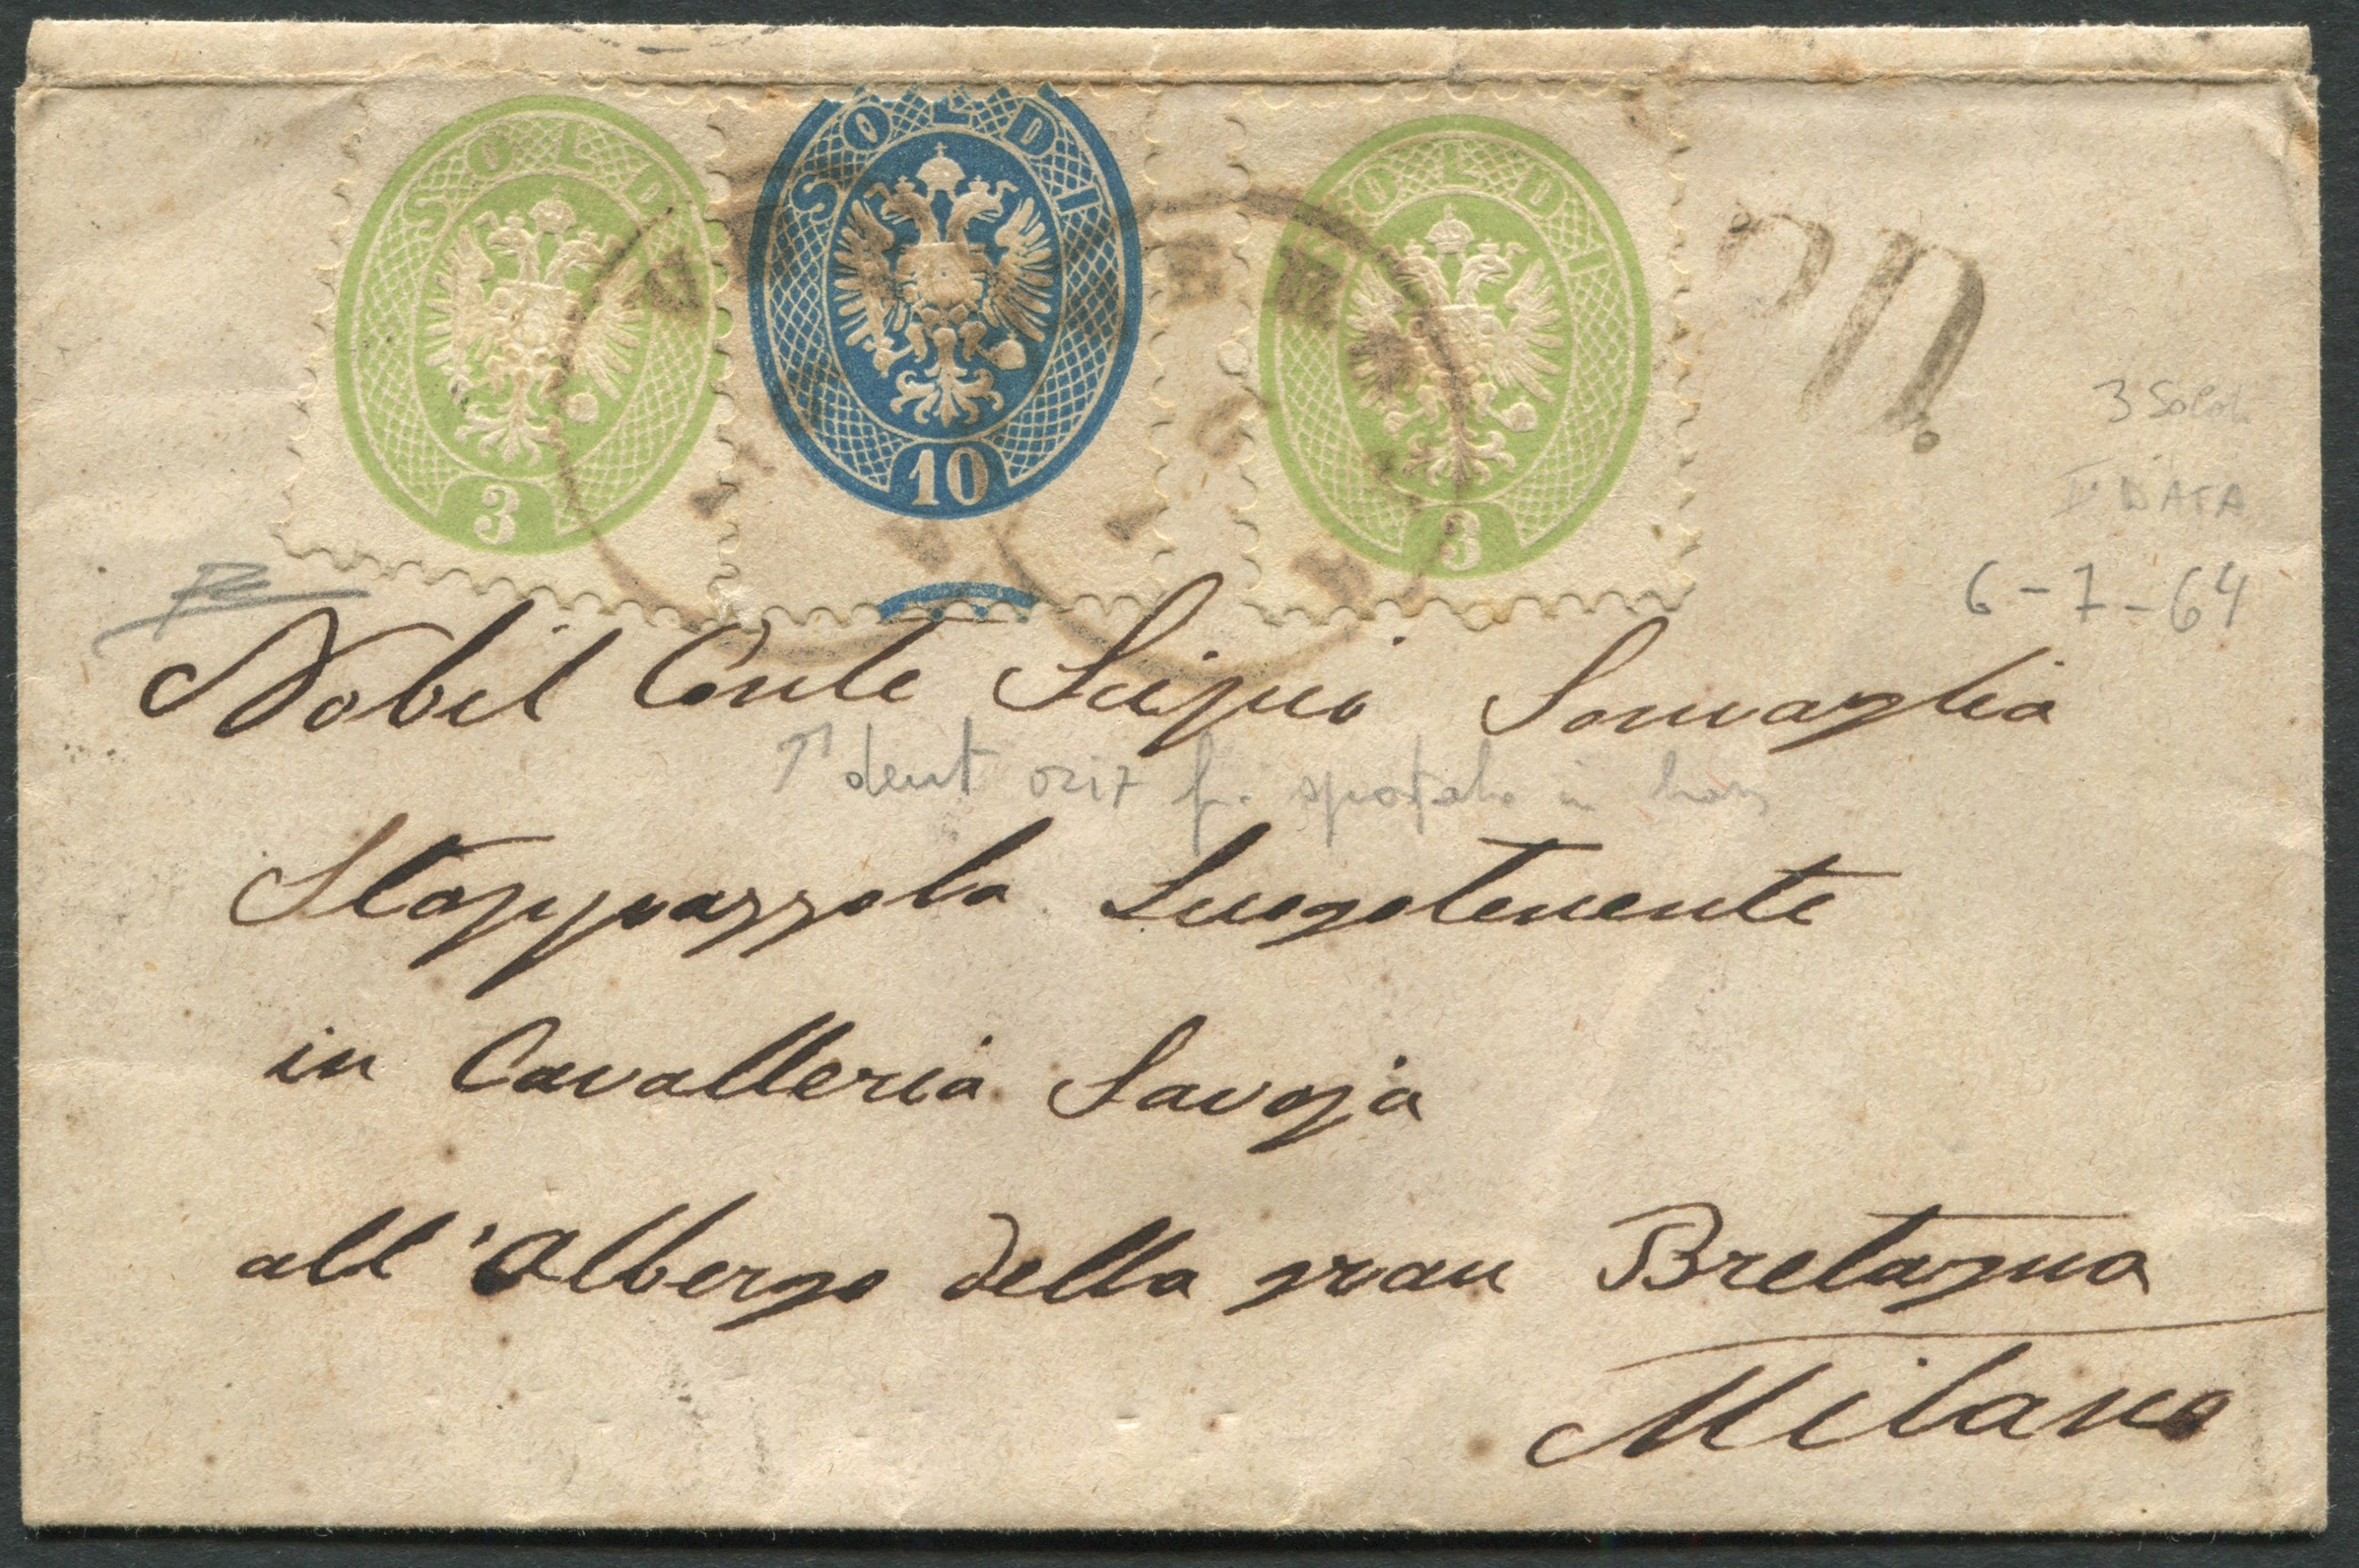 SOLDI
SOLDI
SOLDI
3
10
3
PD.
3 Soldi
Iª DATA
6-7-64
Nobil Conte Scipio Somaglia
dent orig
spostato in
Stoppazzola Luogotenente
in Cavalleria Savoja
all'Albergo della gran Bretagna
Milano